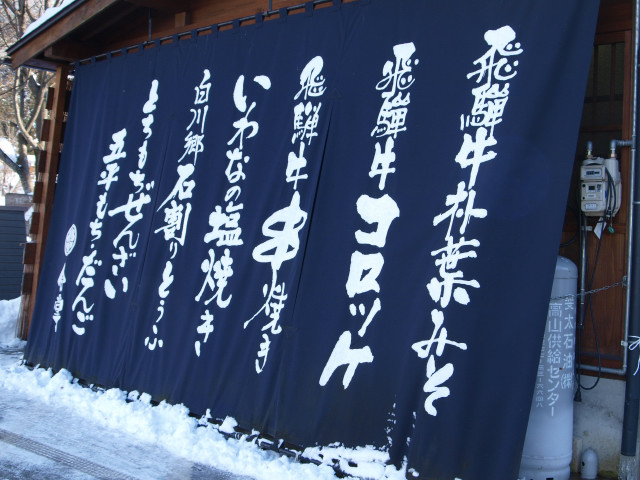 飛騨牛朴葉みそ
飛騨牛コロッケ
飛騨牛串焼き
いわなの塩焼き
白川郷石割りとうふ
とちもちぜんざい
五平もち・だんご
太石油㈱
高山供給センター